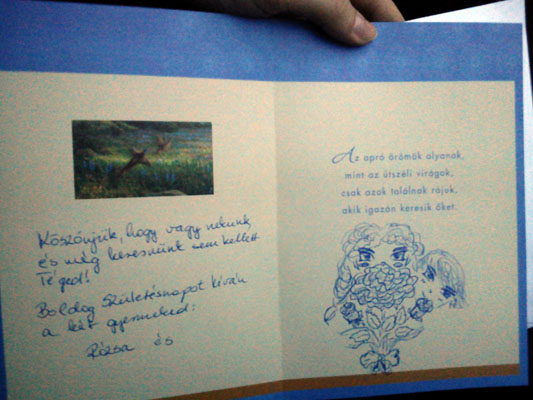 Köszönjük, hogy vagy nekünk,
és még keresnünk sem kellett
Téged!
Boldog születésnapot kíván
a két gyermeked:
Rózsa és
Az apró örömök olyanok,
mint az útszéli virágok,
csak azok találnak rájok,
akik igazán keresik őket.